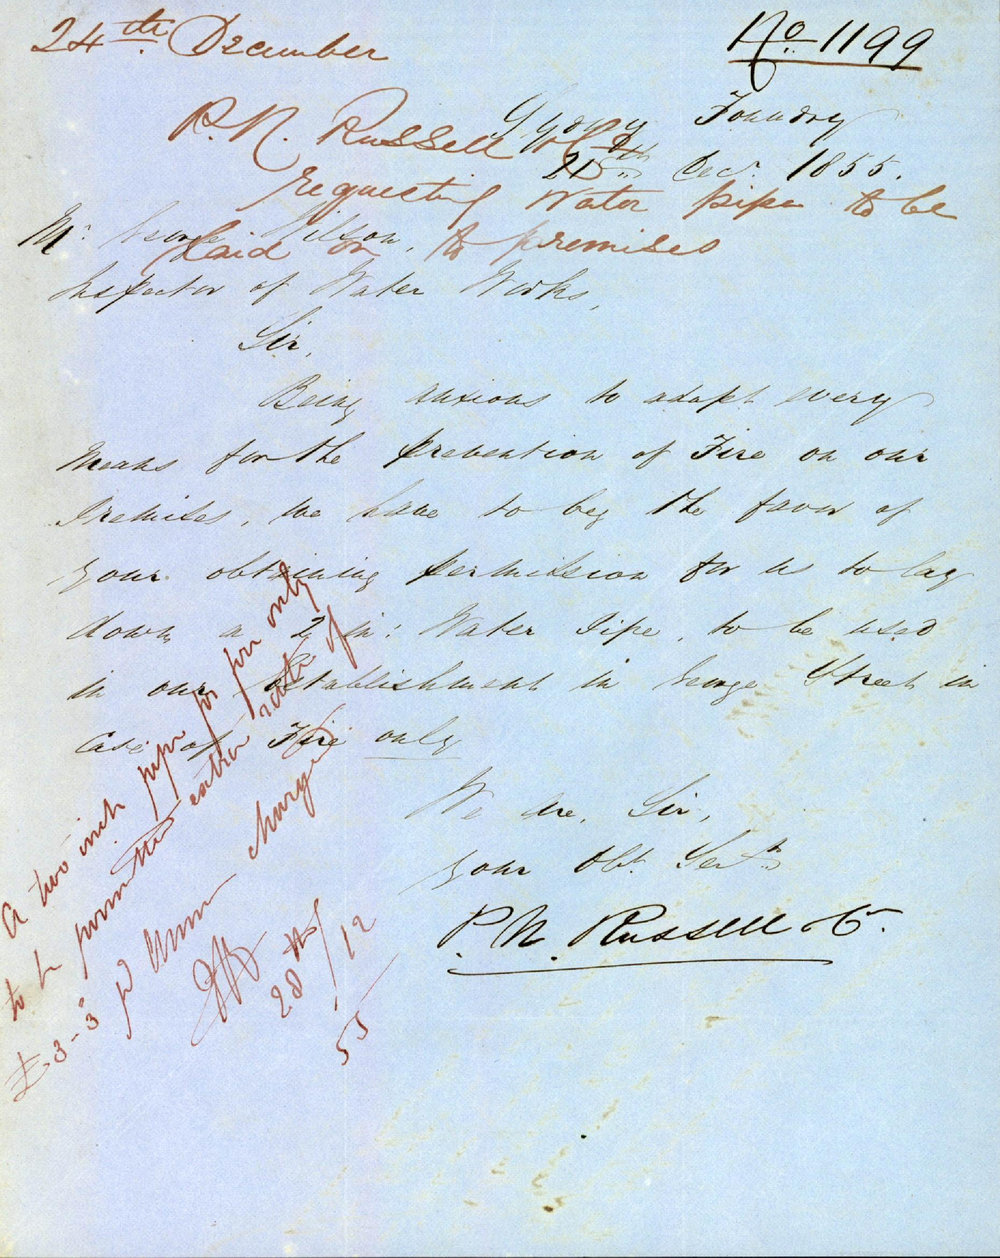 24th December
No. 1199
P. N. Russell & Co
requesting Water pipe to be
laid on to premises
Sydney Foundry
21st Decr. 1855.
Mr. George Wilson,
Inspector of Water Works,
Sir,
Being anxious to adapt every
means for the prevention of Fire on our
Premises, we have to beg the favor of
your obtaining permission for us to lay
down a 2 in: Water Pipe, to be used
in our Establishment in George Street in
case of Fire only
We are, Sir,
your Obt. Servts
P. N. Russell & Co.
A two inch pipe for fire only
to be permitted extra rate of
£3-3 p annum charged
28/12
55